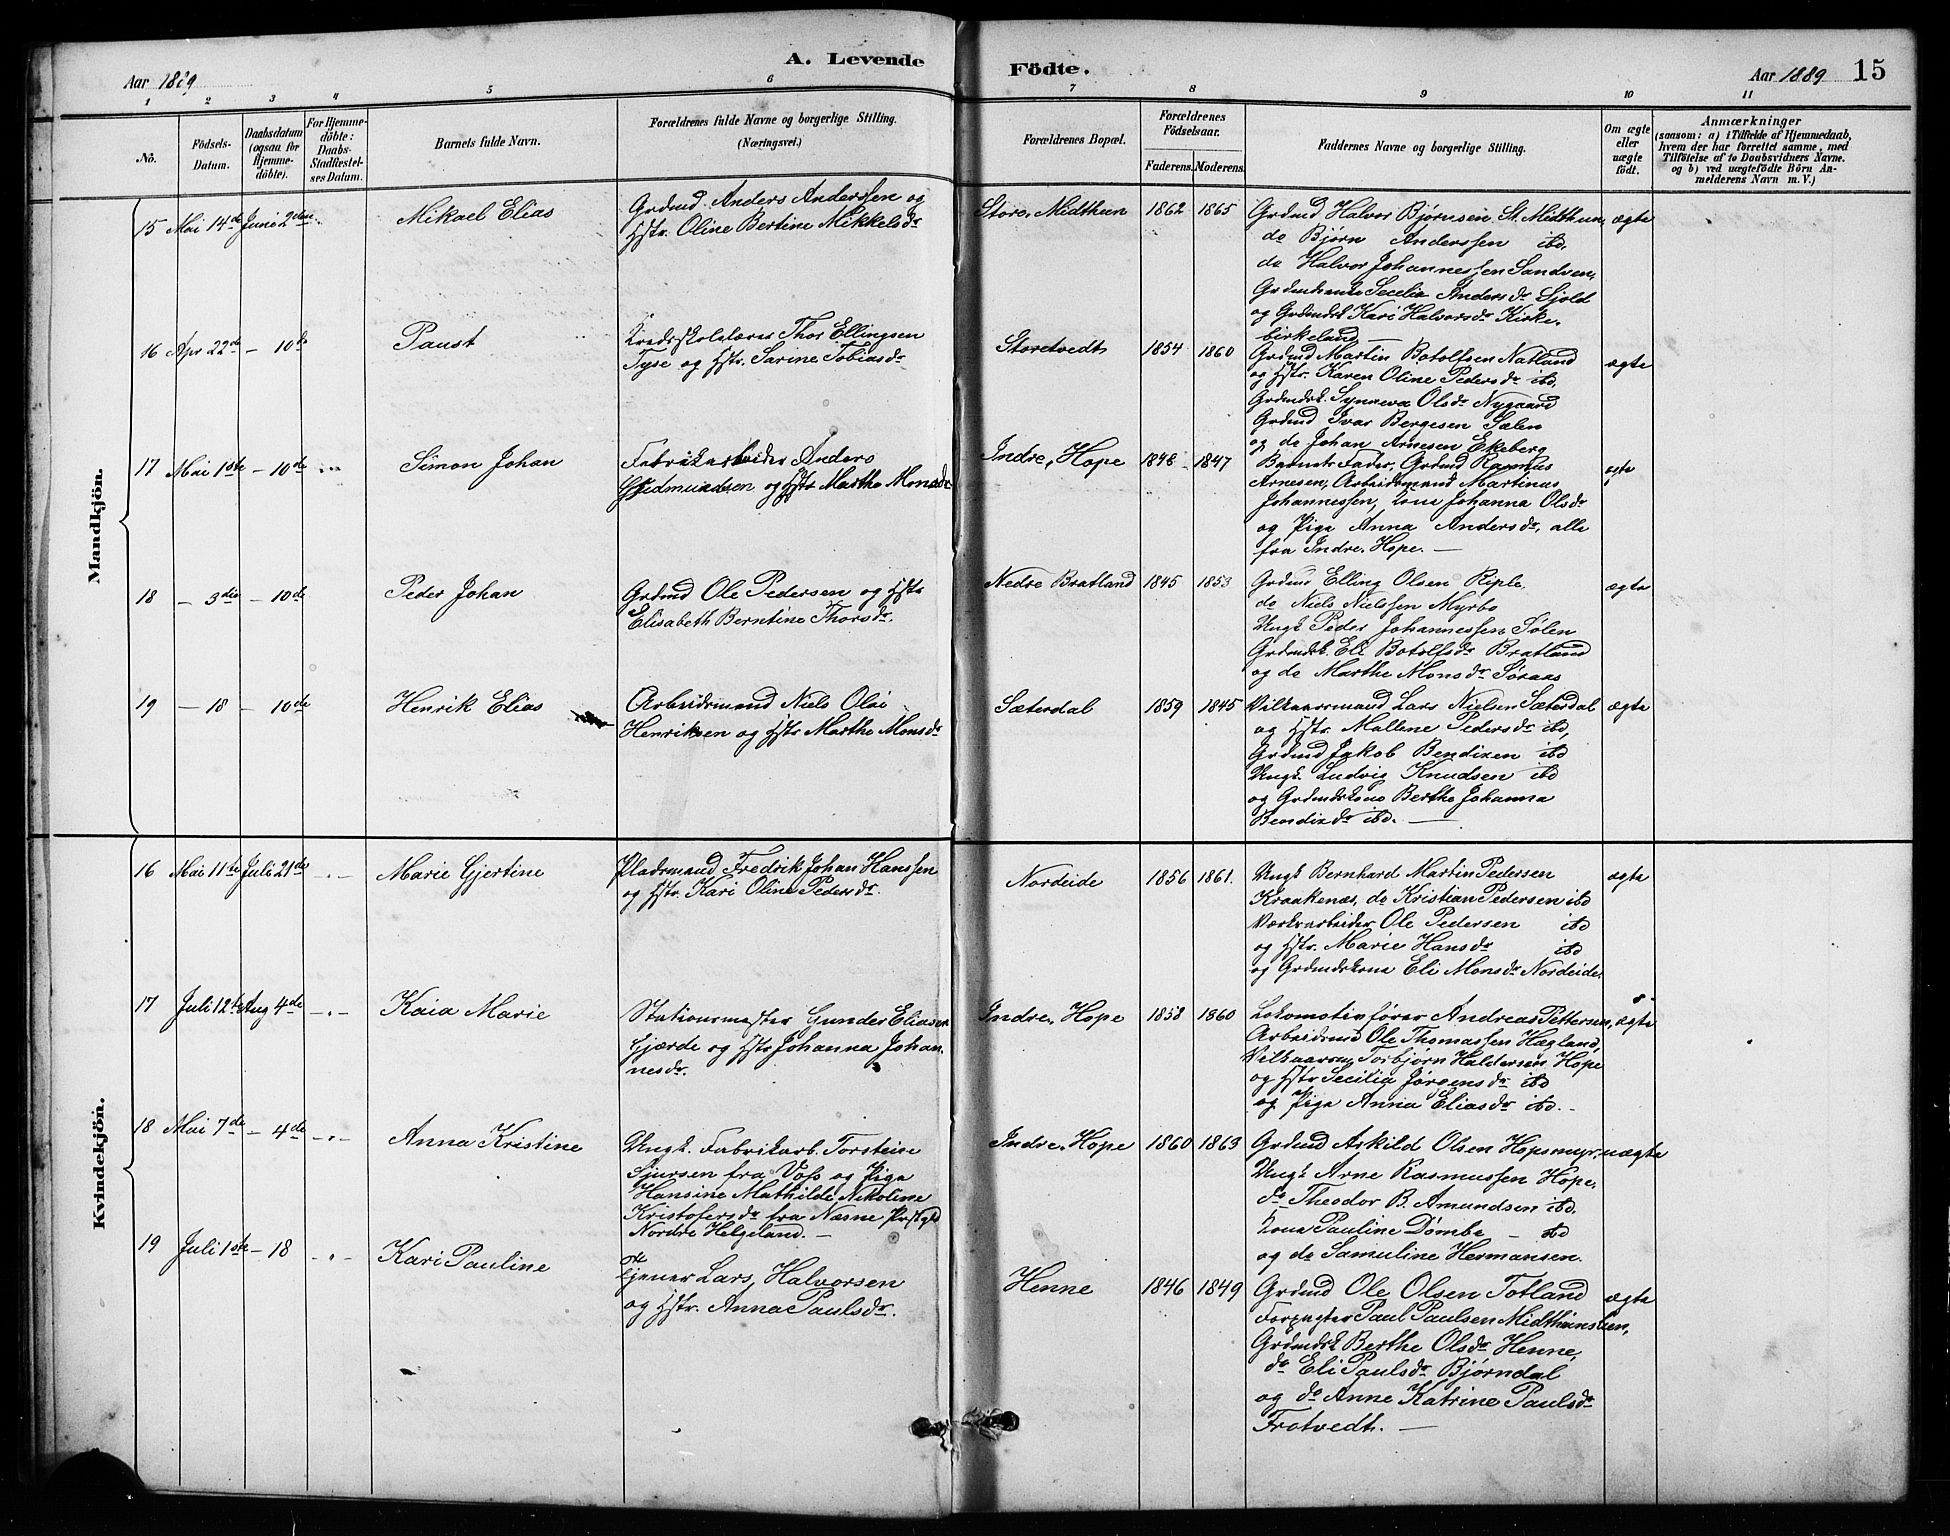 Aar 1889
A. Levende
Födte.
Aar 1889
15
1 2 3 4 5 6 7 8 9 10 11
No.
Födsels-
Datum.
Daabsdatum
(ogsaa for
Hjemme-
döbte).
For Hjemme-
döbte:
Daabs-
Stadfæstel-
ses Datum.
Barnets fulde Navn.
Forældrenes fulde Navne og borgerlige Stilling.
(Næringsvei.)
Forældrenes Bopæl.
Forældrenes
Födselsaar.
Faderens. Moderens.
Faddernes Navne og borgerlige Stilling.
Om ægte
eller
uægte
födt.
Anmærkninger
(saasom: a) i Tilfælde af Hjemmedaab,
hvem der har forrettet samme, med
Tilföielse af to Daabsvidners Navne.
og b) ved uægtefödte Börn An-
melderens Navn m. V.)
Mandkjön.
15 Mai 14de Juni 2den
Mikael Elias
Grdmd. Anders Anderssen og
Hstr. Oline Bertine Mikkelsdr
Store, Midthun 1862 1865
Grdmd Halvor Bjørnsen St. Midthun,
do Bjørn Anderssen ibd.
do Halvor Johannessen Sandven,
Grdmdsenke Secelia Andersdr Sjold
og Grdmdsk Kari Halvorsdr Kirke-
birkeland —
ægte
16 Apr 22de — 10de
Paust
Kredsskolelærer Thor Ellingsen
Tyse og Hstr. Sarine Tobiasdr
Storetvedt 1854 1860
Grdmd Martin Botolfsen Natland
og Hstr. Karen Oline Pedersdr ibd,
Grdmdsk. Synneva Olsdr Nygaard
Grdmd Ivar Bergesen Sælen
og do Johan Arnesen Ekeberg
ægte
17 Mai 1ste — 10de
Simon Johan
Fabrikarbeider Anders
Gudmundsen og Hstr Marthe Monsdr
Indre, Hope 1848 1847
Barnets Fader, Grdmd Rasmus
Arnesen, Arbeidsmand Martinus
Johannessen, Kone Johanna Olsdr
og Pige Anna Andersdr, alle
fra Indre, Hope. —
ægte
18 — 3die — 10de
Peder Johan
Grdmd Ole Pedersen og Hstr
Elisabeth Berntine Thorsdr.
Nedre Bratland 1845 1853
Grdmd Elling Olsen Riple
do Niels Nielssen Myrbo
Ungk Peder Johannessen Sølen
Grdmdsk. Eli Botolfsdr Bratland
og do Marthe Monsdr Søraas
ægte
19 — 18 — 10de
Henrik Elias
Arbeidsmand Niels Olai
Henriksen og Hstr Marthe Monsdr
Sæterdal 1859 1845
Vilkaarsmand Lars Nielsen Sæterdal
og Hstr. Mallene Pedersdr ibd,
Grdmd Jakob Bendixen ibd
Ungk. Ludvig Knudsen ibd
og Grdmdskone Berthe Johanna
Bendixdr ibd. —
ægte
Kvindekjön.
16 Mai 11te Juli 21de
Marie Gjertine
Pladsmand Fredrik Johan Hanssen
og Hstr. Kari Oline Pedersdr.
Nordeide 1856 1861.
Ungk Bernhard Martin Pedersen
Kraakenæs, do Kristian Pedersen ibd
Værkarbeider Ole Pedersen ibd
og Hstr. Marie Hansdr ibd
og Grdmdskone Eli Monsdr Nordeide.
ægte
17 Juli 12te Aug 4de
Kaia Marie
Stationsmester Gunder Eliasen
Gjærde og Hstr Johanna Johan-
nesdr.
Indre, Hope 1858 1860
Lokomotivfører Andreas Pettersen,
Arbeidsmd Ole Thomassen Hægland,
Vilkaarsm, Torbjørn Haldersen Hope
og Hstr Secilia Jørgensdr ibd
og Pige Anna Eliasdr ibd. —
ægte
18 Mai 7de — 4de
Anna Kristine
Ungk. Fabrikarb. Torsteine
Sjursen fra Voss og Pige
Hansine Mathilde Nikoline
Kristofersdr fra Næsne Prstgld
Nordre Helgeland. —
Indre, Hope 1860 1863
Grdmd Askild Olsen Hopsmyr.
Ungk Arne Rasmussen Hope,
do Theodor B. Amundsen ibd.
Kone Pauline Dømbe — ibd
og do Samuline Hermansen.
uægte
19 Juli 1ste — 18
Kari Pauline
Gjener Lars, Halvorsen
og Hstr. Anna Paulsdr.
Henne 1846 1849
Grdmd Ole Olsen Totland
Forpagter Paul Paulsen Midthunslien,
Grdmdsk Berthe Olsdr Henne,
do Eli Paulsdr Bjørndal
og do Anne Katrine Paulsdr
Frotvedt. —
ægte